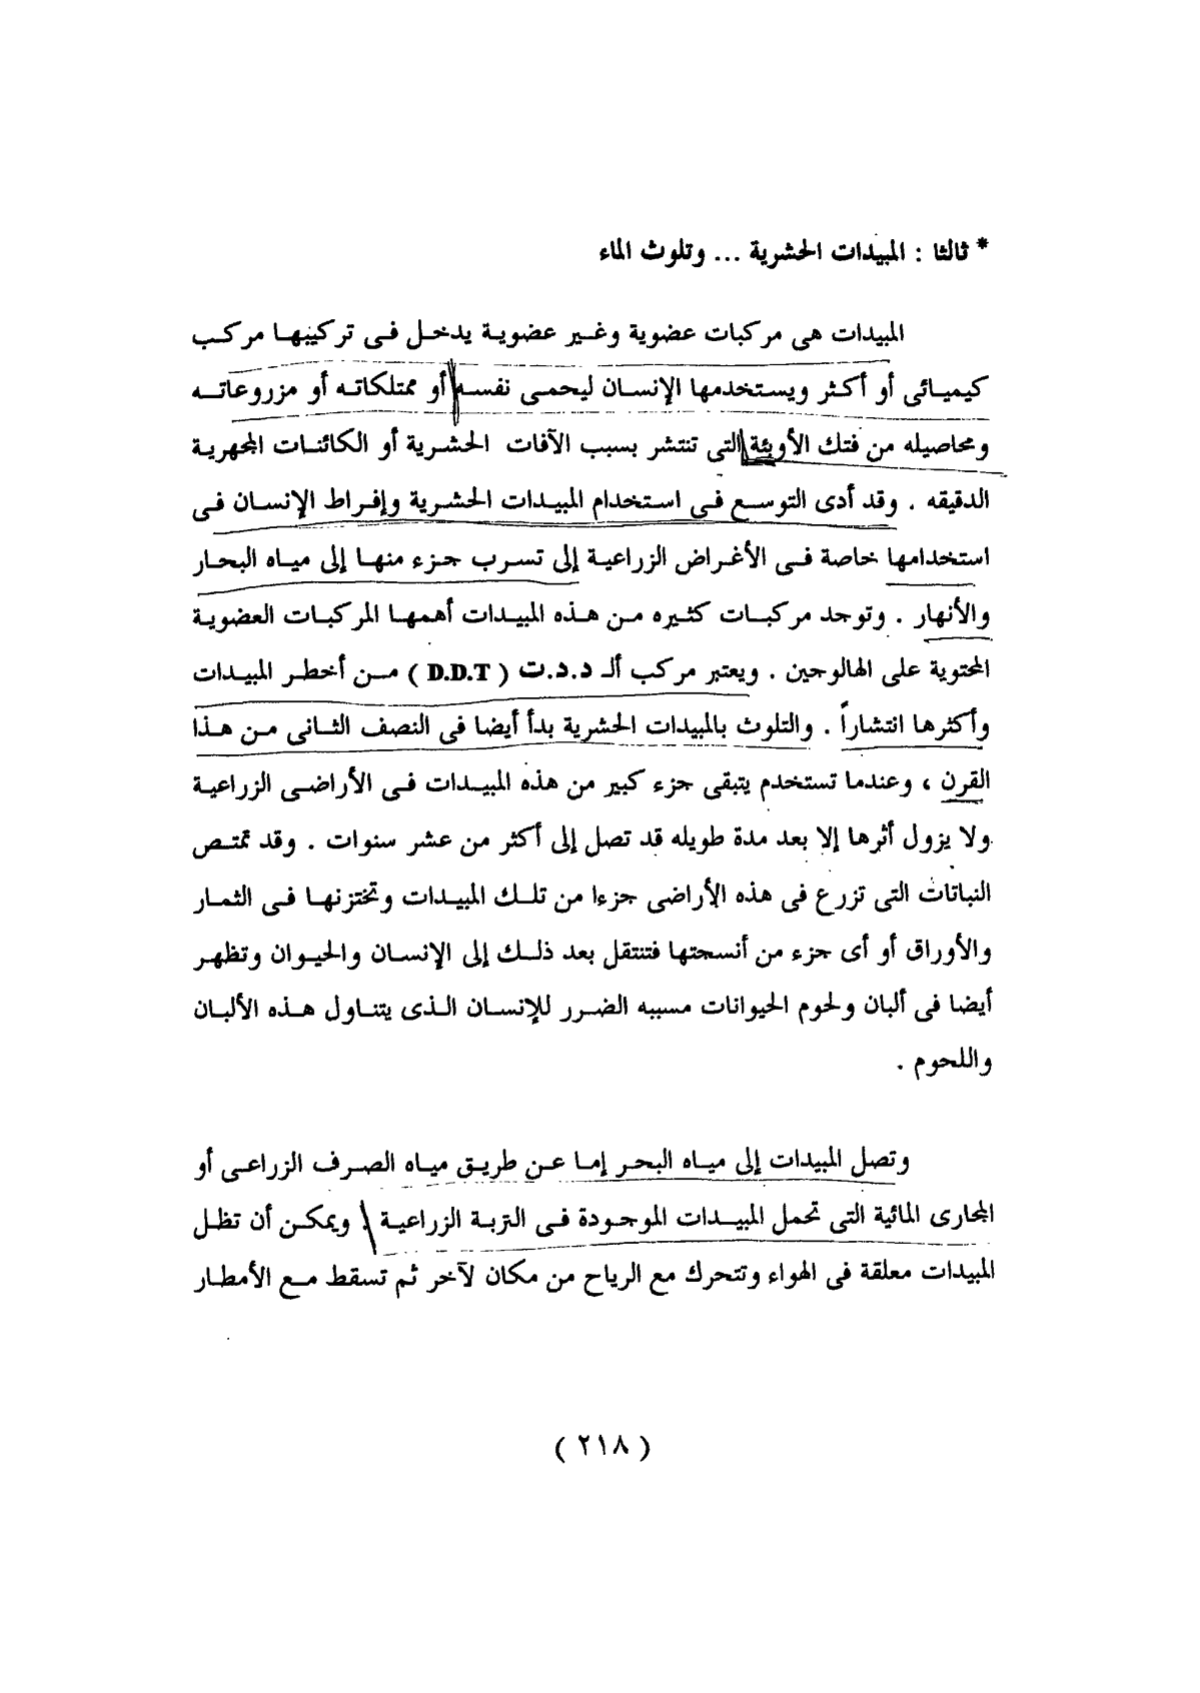 * ثالثا : المبيدات الحشرية ... وتلوث الماء
المبيدات هى مركبات عضوية وغير عضوية يدخل فى تركيبها مركب
كيميائى أو أكثر ويستخدمها الإنسان ليحمى نفسه أو ممتلكاته أو مزروعاته
ومحاصيله من فتك الأوبئة التى تنتشر بسبب الآفات الحشرية أو الكائنات المجهرية
الدقيقه . وقد أدى التوسع فى استخدام المبيدات الحشرية وإفراط الإنسان فى
استخدامها خاصة فى الأغراض الزراعية إلى تسرب جزء منها إلى مياه البحار
والأنهار . وتوجد مركبات كثيره من هذه المبيدات أهمها المركبات العضوية
المحتوية على الهالوجين . ويعتبر مركب ألـ د.د.ت ( D.D.T ) من أخطر المبيدات
وأكثرها انتشاراً . والتلوث بالمبيدات الحشرية بدأ أيضا فى النصف الثانى من هذا
القرن ، وعندما تستخدم يتبقى جزء كبير من هذه المبيدات فى الأراضى الزراعية
ولا يزول أثرها إلا بعد مدة طويله قد تصل إلى أكثر من عشر سنوات . وقد تمتص
النباتات التى تزرع فى هذه الأراضى جزءا من تلك المبيدات وتختزنها فى الثمار
والأوراق أو أى جزء من أنسجتها فتنتقل بعد ذلك إلى الإنسان والحيوان وتظهر
أيضا فى ألبان ولحوم الحيوانات مسببه الضرر للإنسان الذى يتناول هذه الألبان
واللحوم .
وتصل المبيدات إلى مياه البحر إما عن طريق مياه الصرف الزراعى أو
المجارى المائية التى تحمل المبيدات الموجودة فى التربة الزراعية . ويمكن أن تظل
المبيدات معلقة فى الهواء وتتحرك مع الرياح من مكان لآخر ثم تسقط مع الأمطار
( ٢١٨ )